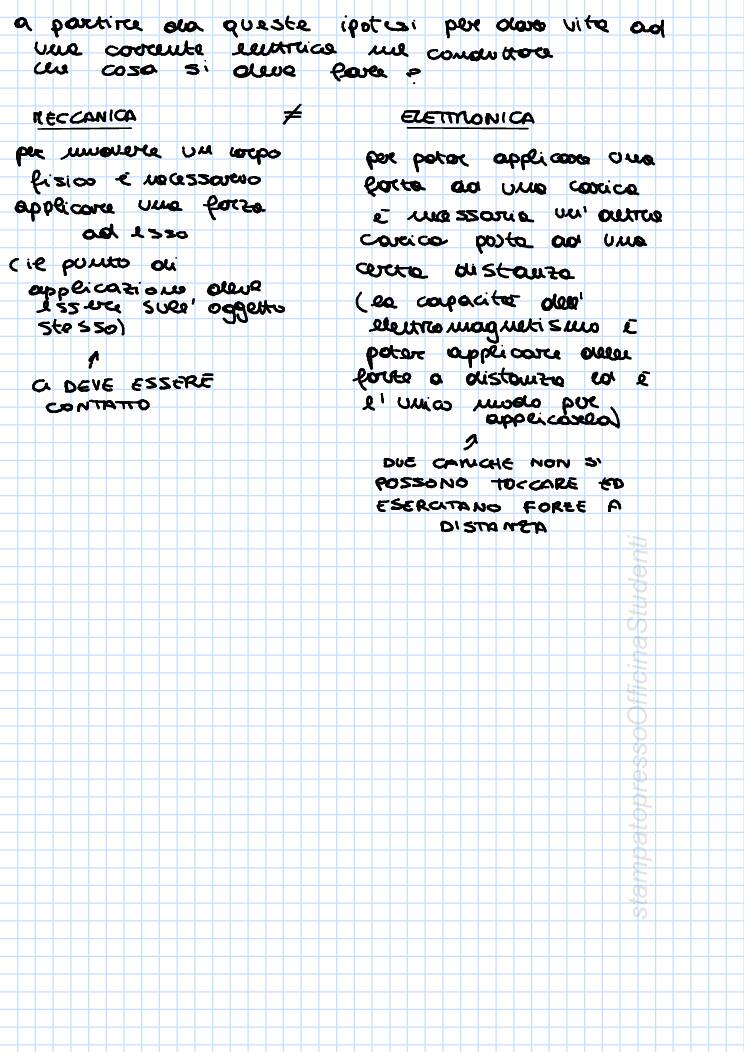 a partire da queste ipotesi per dare vita ad
una corrente elettrica nel conduttore
che cosa si deve fare ?
MECCANICA ≠ ELETTRONICA
per muovere un corpo
fisico è necessario
applicare una forza
ad esso
(il punto di
applicazione deve
essere sull' oggetto
stesso)
↑
CI DEVE ESSERE
CONTATTO
per poter applicare una
forza ad una carica
è necessaria un' altra
carica posta ad una
certa distanza
(la capacità dell'
elettromagnetismo è
poter applicare delle
forze a distanza ed è
l' unico modo per
applicarla)
↗
DUE CARICHE NON SI
POSSONO TOCCARE ED
ESERCITANO FORZE A
DISTANZA
stampatopressoOfficinaStudenti